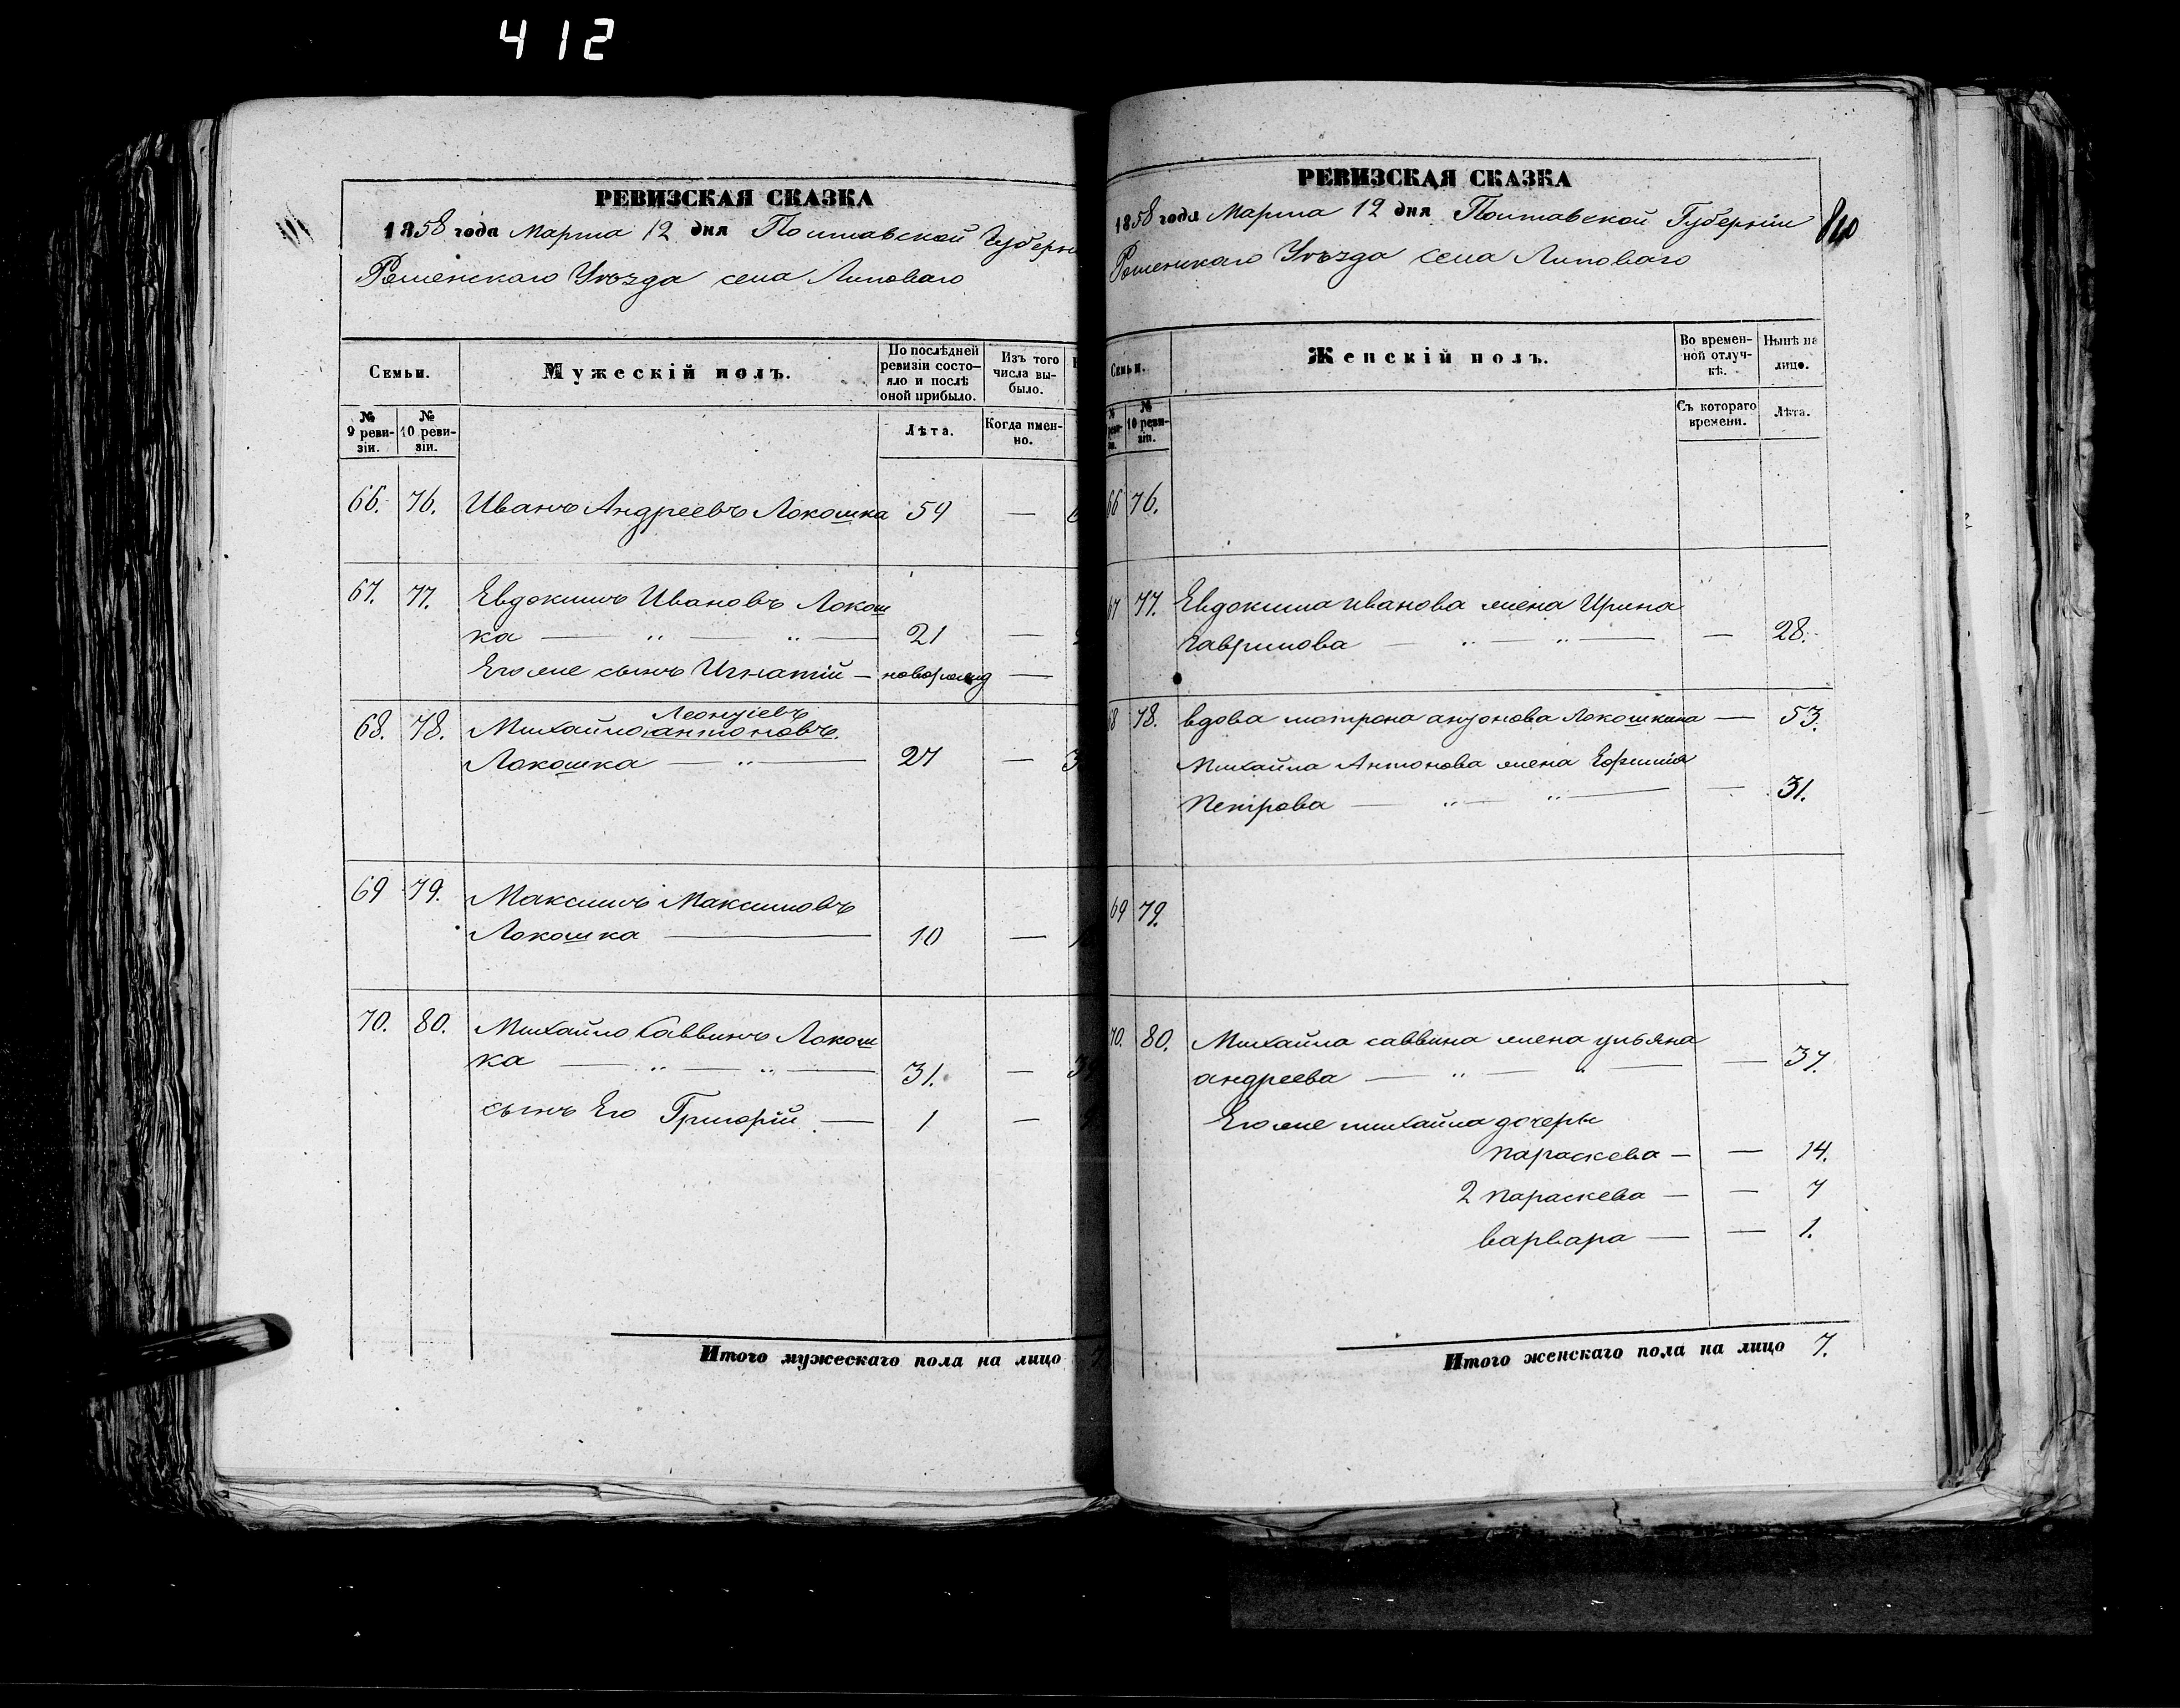 412
РЕВИЗСКАЯ СКАЗКА
1858 года Марта 12 дня Полтавской Губерн
Роменскаго Уѣзда села Липоваго
Семьи.
Мужескій полъ.
По послѣдней ревизіи состояло и послѣ оной прибыло.
Изъ того числа выбыло.
№ 9 ревизіи.
№ 10 ревизіи.
Лѣта.
Когда именно.
66. 76. Иванъ Андреевъ Локошка 54 —
67. 77. Евдокимъ Ивановъ Локош
ка — „ — „ — 21 —
Его же сынъ Игнатій — новорожд —
Леонтіевъ
68. 78. Михайло антоновъ.
Локошка — „ — 27 —
69 79. Максимъ Максимовъ
Локошка — 10 —
70. 80. Михайло Саввинъ Локош
ка — „ — „ — 31. —
сынъ Его Григорій — 1 —
Итого мужескаго пола на лицо
РЕВИЗСКАЯ СКАЗКА
1858 года Марта 12 дня Полтавской Губерніи
Роменскаго Уѣзда села Липоваго
Семьи.
Женскій полъ.
Во временной отлучкѣ.
Нынѣ на лицо.
№ 10 ревизіи.
Съ котораго времени.
Лѣта.
66 76.
67 77. Евдокима иванова жена Ирина
Гаврилова — „ — „ — — 28.
68 78. вдова мотрона антонова Локошкина — 53.
Михайла Антонова жена Ефимія
Петрова — „ — „ — — 31.
69 79.
70. 80. Михайла саввина жена ульяна
андреева — „ — „ — — 37.
Его же михайла дочери
параскева — — 14.
2 параскева — — 7
варвара — — 1.
Итого женскаго пола на лицо 7.